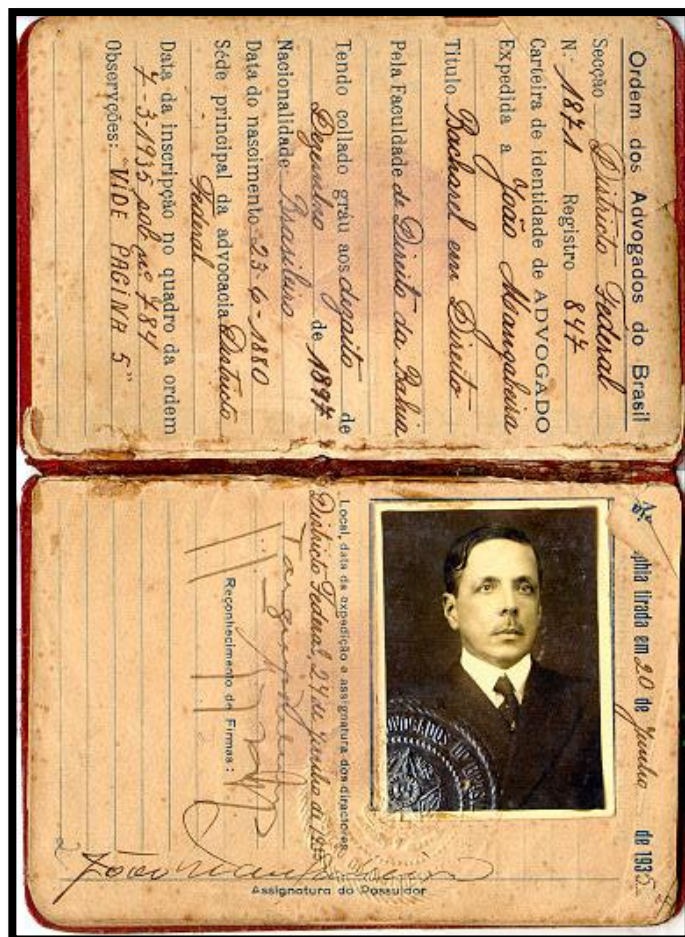 Ordem dos Advogados do Brasil
Secção Districto Federal
N. 1871 Registro 847
Carteira de identidade de ADVOGADO
Expedida a João Mangabeira
Titulo Bacharel em Direito
Pela Faculdade de Direito da Bahia
Tendo collado gráu aos dezoito de
Dezembro de 1897
Nacionalidade Brasileiro
Data do nascimento 23-6-1880
Séde principal da advocacia Districto
Federal
Data da inscripção no quadro da ordem
7-3-1935 sob nº 784
Observções: "VIDE PAGINA 5"
phia tirada em 20 de Junho de 1935
Local, data da expedição e assignatura dos directores
Districto Federal, 24 de Junho de 1935
Reconhecimento de Firmas:
João Mangabeira
Assignatura do Possuidor
2